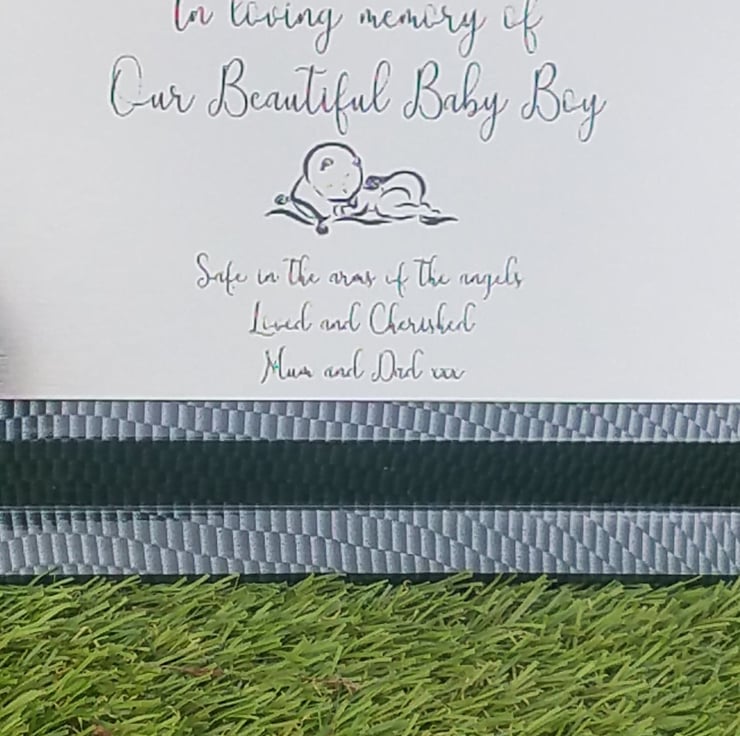 In loving memory of
Our Beautiful Baby Boy
Safe in the arms of the angels
Loved and Cherished
Mum and Dad xxx